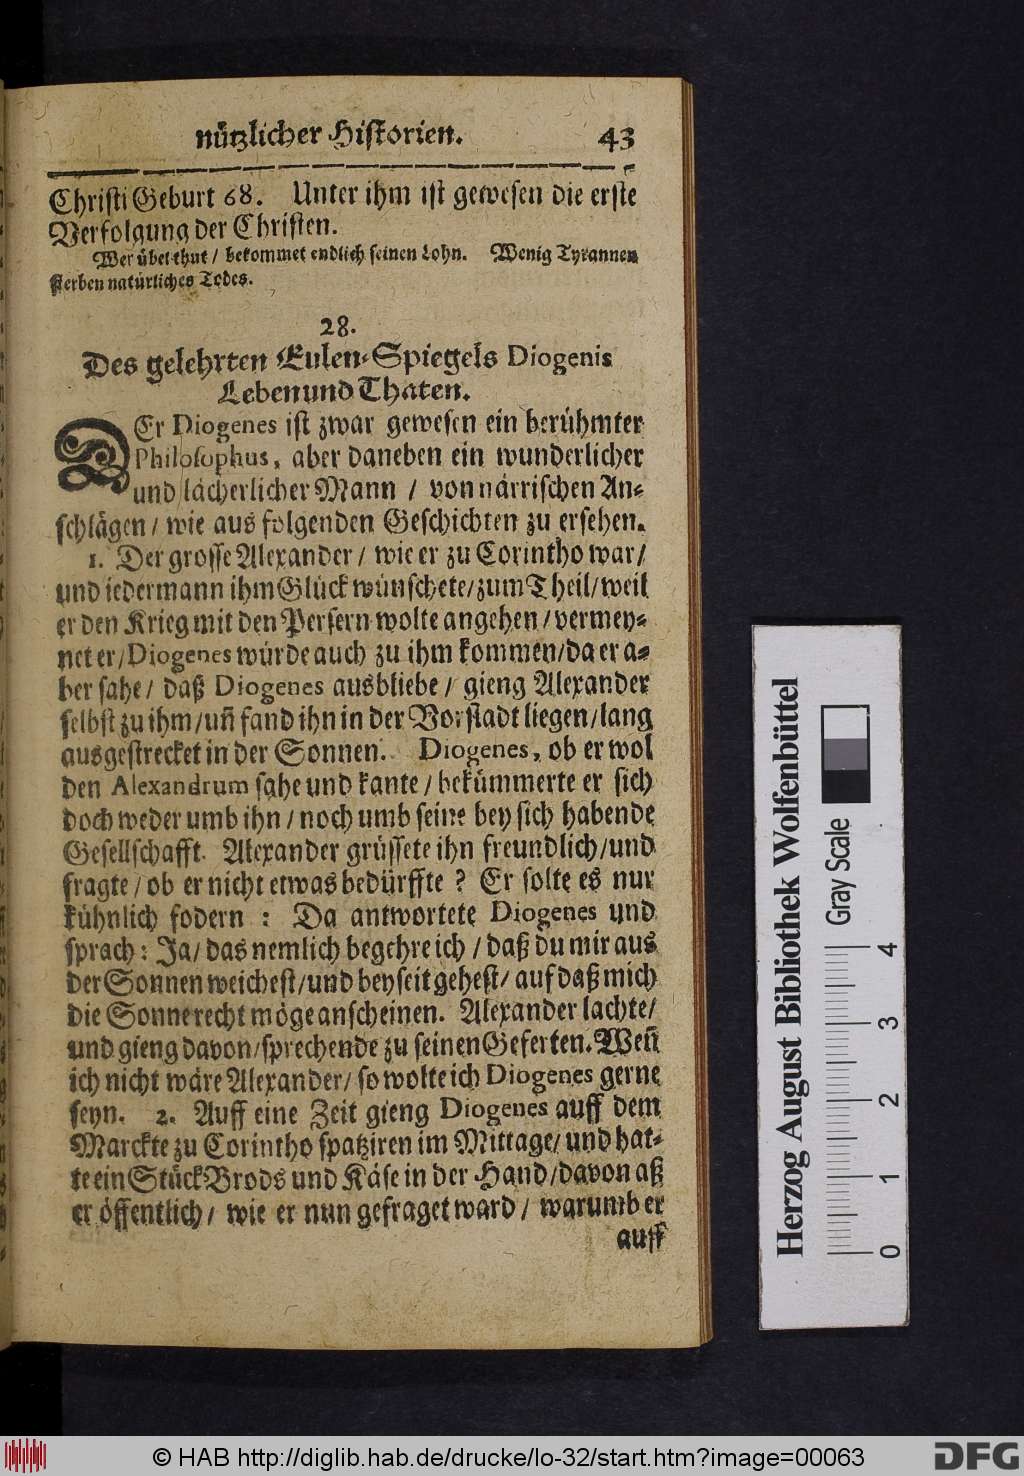 nützlicher Historien. 43
Christi Geburt 68. Unter ihm ist gewesen die erste
Verfolgung der Christen.
Wer übel thut / bekommet endlich seinen Lohn. Wenig Tyrannen
sterben natürliches Todes.
28.
Des gelehrten Eulen-Spiegels Diogenis
Leben und Thaten.
DEr Diogenes ist zwar gewesen ein berühmter
Philosophus, aber daneben ein wunderlicher
und lächerlicher Mann / von närrischen An-
schlägen / wie aus folgenden Geschichten zu ersehen.
1. Der grosse Alexander / wie er zu Corintho war /
und iedermann ihm Glück wünschete / zum Theil / weil
er den Krieg mit den Persern wolte angehen / vermey-
net er / Diogenes würde auch zu ihm kommen / da er a-
ber sahe / daß Diogenes ausbliebe / gieng Alexander
selbst zu ihm / uñ fand ihn in der Vorstadt liegen / lang
ausgestrecket in der Sonnen. Diogenes, ob er wol
den Alexandrum sahe und kante / bekümmerte er sich
doch weder umb ihn / noch umb seine bey sich habende
Gesellschafft. Alexander grüssete ihn freundlich / und
fragte / ob er nicht etwas bedürffte ? Er solte es nur
kühnlich fodern : Da antwortete Diogenes und
sprach : Ja / das nemlich begehre ich / daß du mir aus
der Sonnen weichest / und beyseit gehest / auf daß mich
die Sonne recht möge anscheinen. Alexander lachte /
und gieng davon / sprechende zu seinen Geferten. Weñ
ich nicht wäre Alexander / so wolte ich Diogenes gerne
seyn. 2. Auff eine Zeit gieng Diogenes auff dem
Marckte zu Corintho spatziren im Mittage / und hat-
te ein Stück Brods und Käse in der Hand / davon aß
er öffentlich / wie er nun gefraget ward / warumb er
auff
Herzog August Bibliothek Wolfenbüttel
Gray Scale
0 1 2 3 4
© HAB http://diglib.hab.de/drucke/lo-32/start.htm?image=00063
DFG